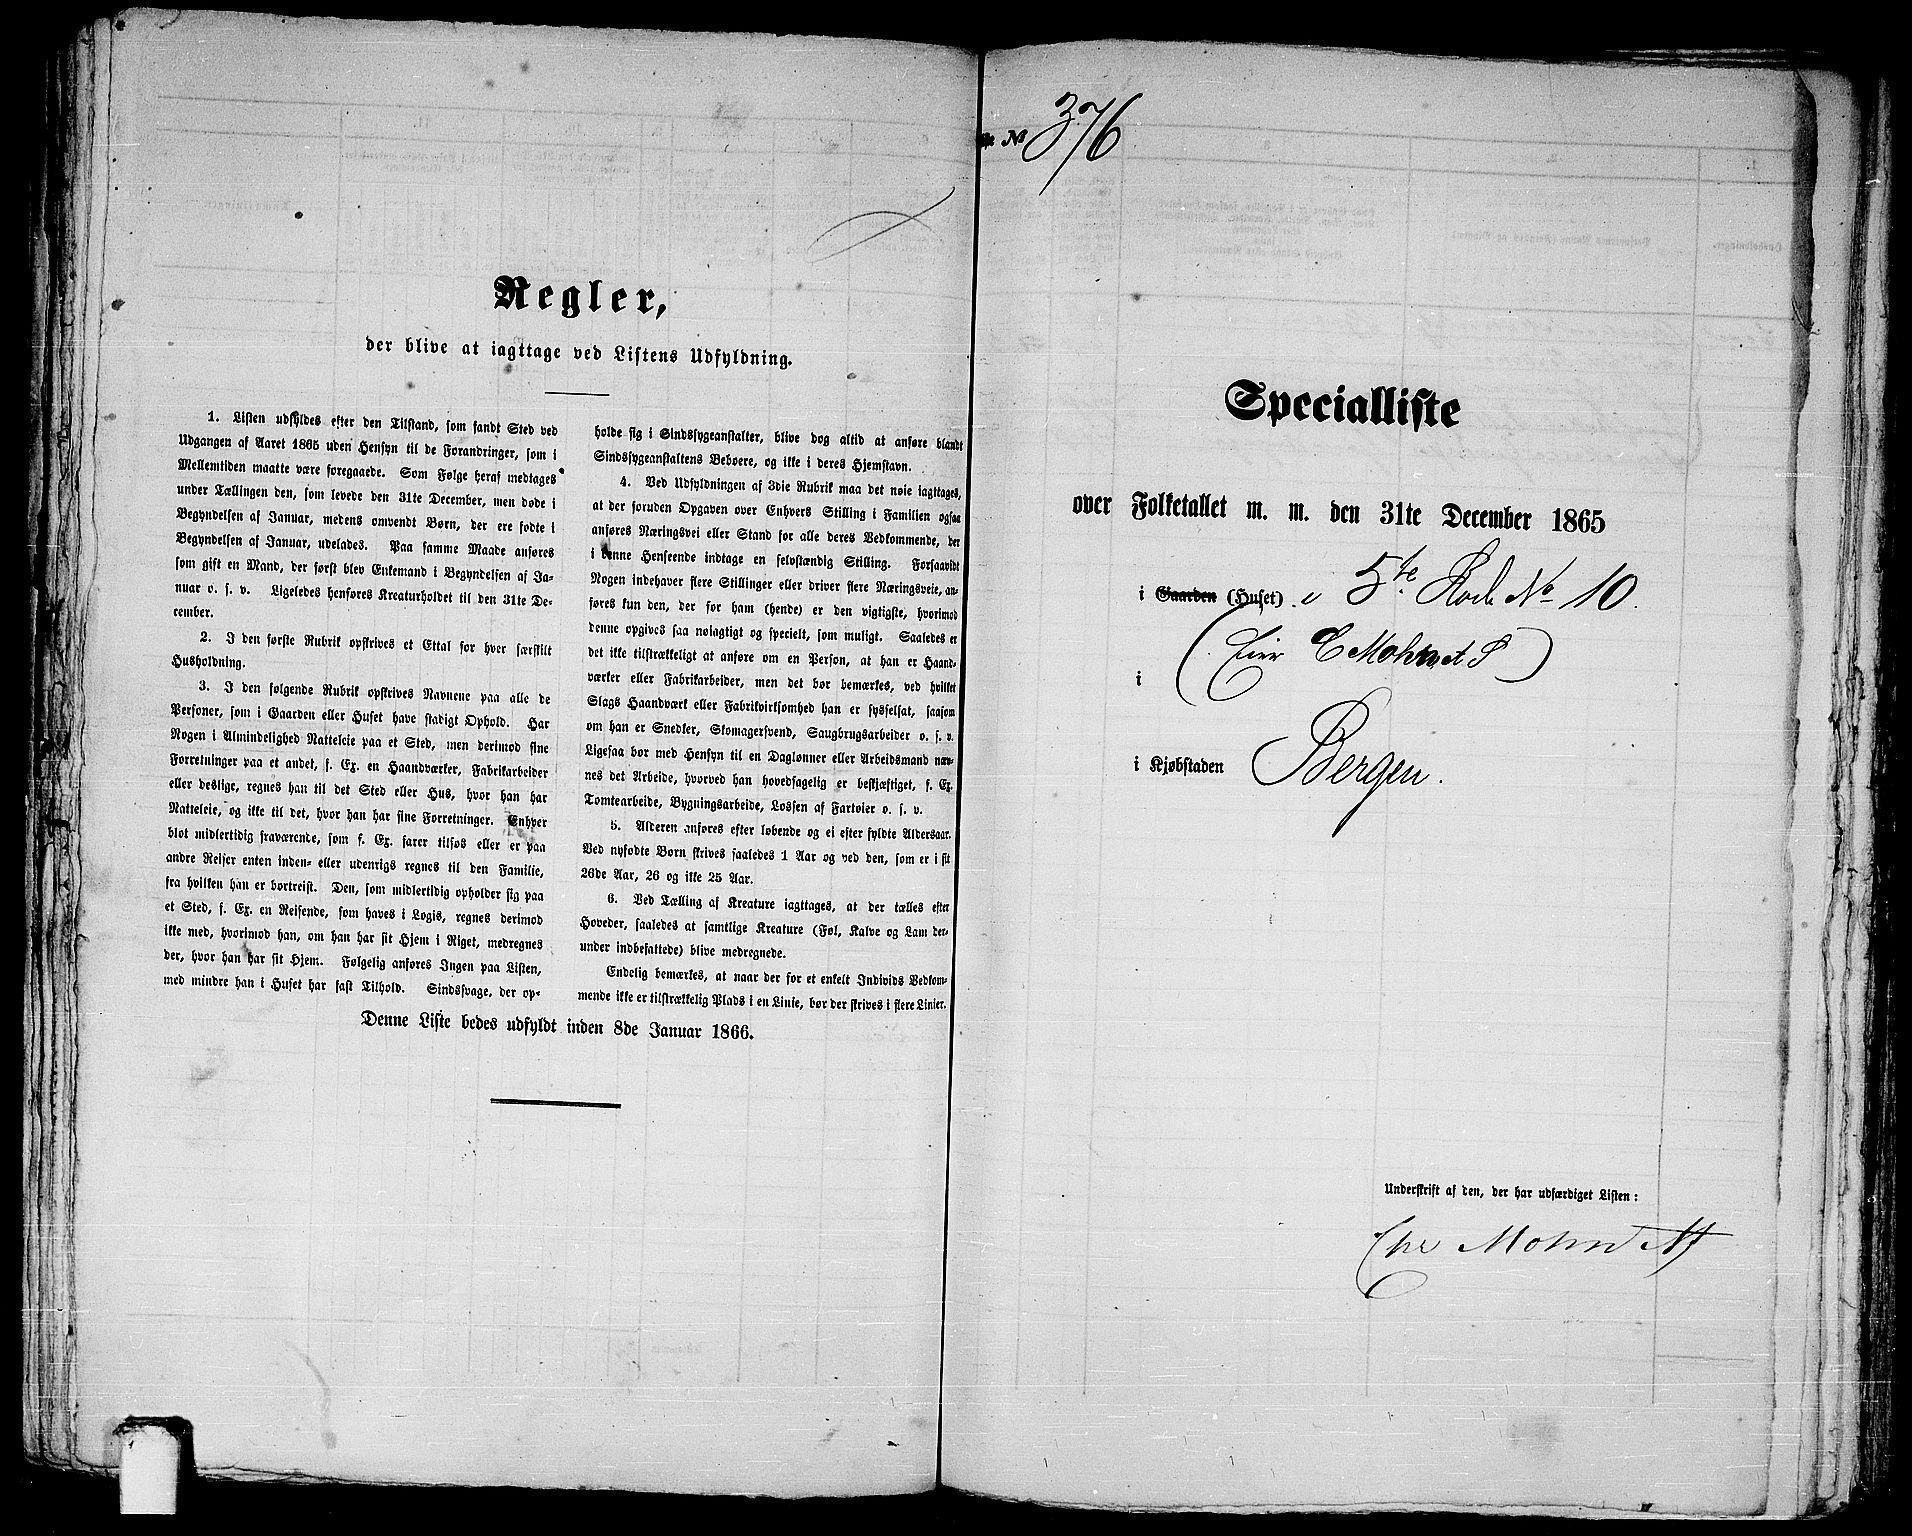 Regler,
der blive at iagttage ved Listens Udfyldning.
1. Listen udfyldes efter den Tilstand, som fandt Sted ved
Udgangen af Aaret 1865 uden Hensyn til de Forandringer, som i
Mellemtiden maatte være foregaaede. Som Følge heraf medtages
under Tællingen den, som levede den 31te December, men døde i
Begyndelsen af Januar, medens omvendt Børn, der ere fødte i
Begyndelsen af Januar, udelades. Paa samme Maade anføres
som gift en Mand, der først blev Enkemand i Begyndelsen af Ja-
nuar o. s. v. Ligeledes henføres Kreaturholdet til den 31te De-
cember.
2. I den første Rubrik opskrives et Ettal for hver særskilt
Husholdning.
3. I den følgende Rubrik opskrives Navnene paa alle de
Personer, som i Gaarden eller Huset have stadigt Ophold. Har
Nogen i Almindelighed Natteleie paa et Sted, men derimod sine
Forretninger paa et andet, f. Ex. en Haandværker, Fabrikarbeider
eller deslige, regnes han til det Sted eller Hus, hvor han har
Natteleie, og ikke til det, hvor han har sine Forretninger. Enhver
blot midlertidig fraværende, som f. Ex. farer tilsøs eller er paa
andre Reiser enten inden- eller udenrigs regnes til den Familie,
fra hvilken han er bortreist. Den, som midlertidig opholder sig paa
et Sted, f. Ex. en Reisende, som haves i Logis, regnes derimod
ikke med, hvorimod han, om han har sit Hjem i Riget, medregnes
der, hvor han har sit Hjem. Følgelig anføres Ingen paa Listen,
med mindre han i Huset har fast Tilhold. Sindssvage, der op-
holde sig i Sindssygeanstalter, blive dog altid at anføre blandt
Sindssygeanstaltens Beboere, og ikke i deres Hjemstavn.
4. Ved Udfyldningen af 3die Rubrik maa det nøie iagttages,
at der foruden Opgaven over Enhvers Stilling i Familien ogsaa
anføres Næringsvei eller Stand for alle deres Vedkommende, der
i denne Henseende indtage en selvstændig Stilling. Forsaavidt
Nogen indehaver flere Stillinger eller driver flere Næringsveie, an-
føres kun den, der for ham (hende) er den vigtigste, hvorimod
denne opgives saa nøiagtigt og specielt, som muligt. Saaledes er
det ikke tilstrækkeligt at anføre om en Person, at han er Haand-
værker eller Fabrikarbeider, men det bør bemærkes, ved hvilket
Slags Haandværk eller Fabrikvirksomhed han er sysselsat, saasom
om han er Snedker, Skomagersvend, Saugbrugsarbeider o. s. v.
Ligesaa bør med Hensyn til en Daglønner eller Arbeidsmand næv-
nes det Arbeide, hvorved han hovedsagelig er beskjæftiget, f. Ex.
Tomtearbeide, Bygningsarbeide, Lossen af Fartøier o. s. v.
5. Alderen anføres efter løbende og ei efter fyldte Aldersaar.
Ved nyfødte Børn skrives saaledes 1 Aar og ved den, som er i sit
26de Aar, 26 og ikke 25 Aar.
6. Ved Tælling af Kreature iagttages, at der tælles efter
Hoveder, saaledes at samtlige Kreature (Føl, Kalve og Lam der-
under indbefattede) blive medregnede.
Endelig bemærkes, at naar der for et enkelt Individs Vedkom-
mende ikke er tilstrækkelig Plads i en Linie, bør der skrives i flere Linier.
Denne Liste bedes udfyldt inden 8de Januar 1866.
No 376
Specialliste
over Folketallet m. m. den 31te December 1865
i Gaarden (Huset) i 5te Rode No 10.
i (Eier C Mohn et S)
i Kjøbstaden Bergen.
Underskrift af den, der har udfærdiget Listen:
Chr Mohn